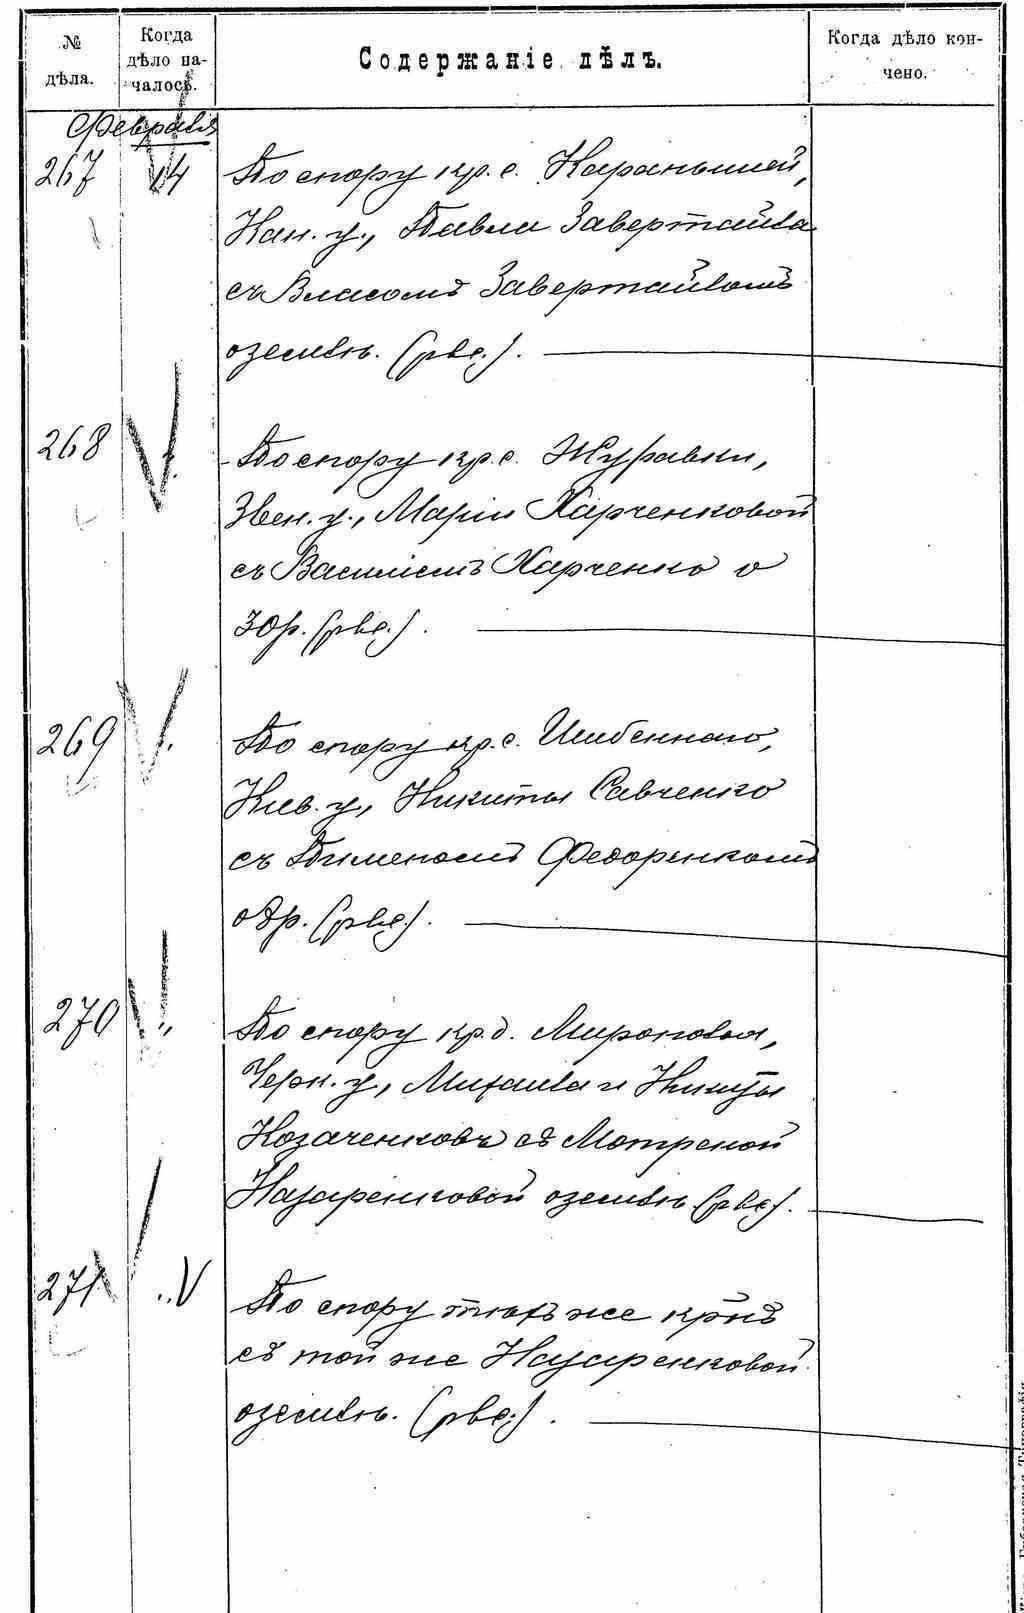 № дѣла.
Когда дѣло началось.
Содержаніе дѣлъ.
Когда дѣло кончено.
Февраля
267 14 По спору кр. с. Караньшией,
Кан. у., Павла Завертайла
съ Власомъ Завертайломъ
о землѣ. (рве.).
268 По спору кр. с. Журавки,
Звен. у., Маріи Харченковой
съ Василіемъ Харченко о
30 р. (рве.).
269 По спору кр. с.
Кіев. у., Никиты Савченко
съ Пименомъ Федоренкомъ
о др. (рве.).
270 " По спору кр. д. Мироновки,
Черк. у., Михаила и Никиты
Козаченковъ съ Мотреной
Назаренковой о землѣ (рве).
271 " По спору тѣхъ же крнъ
съ той же Назаренковой
о землѣ. (рве.).
Губернская Типографія